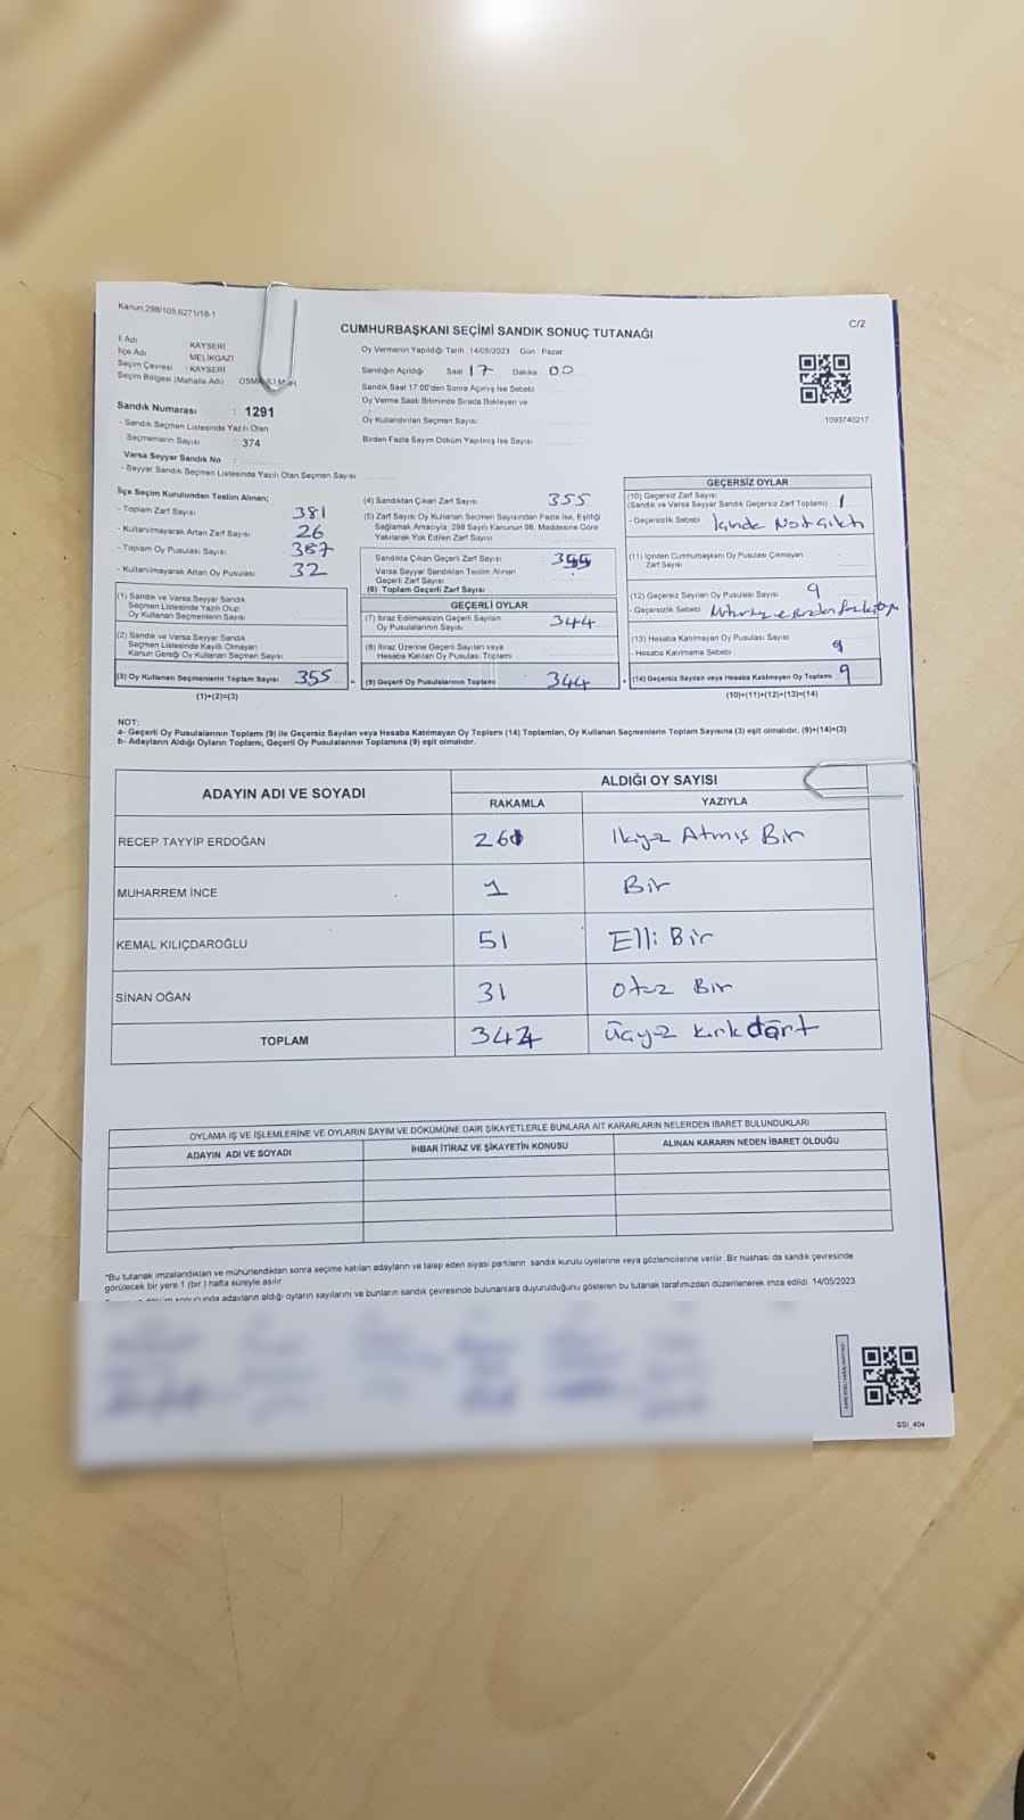 Kanun:298/105,6271/18-1
C/2
CUMHURBAŞKANI SEÇİMİ SANDIK SONUÇ TUTANAĞI
İl Adı : KAYSERİ
İlçe Adı : MELİKGAZİ
Seçim Çevresi : KAYSERİ
Seçim Bölgesi (Mahalle Adı)
Oy Vermenin Yapıldığı Tarih :14/05/2023 Gün : Pazar
Sandığın Açıldığı Saat 17 Dakika 00
Sandık Saat 17:00'den Sonra Açılmış İse Sebebi
Oy Verme Saati Bitiminde Sırada Bekleyen ve
Oy Kullandırılan Seçmen Sayısı
Birden Fazla Sayım Döküm Yapılmış İse Sayısı
1093740217
Sandık Numarası : 1291
- Sandık Seçmen Listesinde Yazılı Olan
Seçmenlerin Sayısı : 374
Varsa Seyyar Sandık No
- Seyyar Sandık Seçmen Listesinde Yazılı Olan Seçmen Sayısı
İlçe Seçim Kurulundan Teslim Alınan;
- Toplam Zarf Sayısı 381
- Kullanılmayarak Artan Zarf Sayısı 26
- Toplam Oy Pusulası Sayısı 387
- Kullanılmayarak Artan Oy Pusulası 32
(1) Sandık ve Varsa Seyyar Sandık
Seçmen Listesinde Yazılı Olup
Oy Kullanan Seçmenlerin Sayısı
(2) Sandık ve Varsa Seyyar Sandık
Seçmen Listesinde Kayıtlı Olmayan
Kanun Gereği Oy Kullanan Seçmen Sayısı
(3) Oy Kullanan Seçmenlerin Toplam Sayısı 355
(1)+(2)=(3)
(4) Sandıktan Çıkan Zarf Sayısı 355
(5) Zarf Sayısı Oy Kullanan Seçmen Sayısından Fazla İse, Eşitliği
Sağlamak Amacıyla; 298 Sayılı Kanunun 98. Maddesine Göre
Yakılarak Yok Edilen Zarf Sayısı
Sandıkta Çıkan Geçerli Zarf Sayısı
Varsa Seyyar Sandıktan Teslim Alınan
Geçerli Zarf Sayısı
(6) Toplam Geçerli Zarf Sayısı
GEÇERLİ OYLAR
(7) İtiraz Edilmeksizin Geçerli Sayılan
Oy Pusulalarının Sayısı 344
(8) İtiraz Üzerine Geçerli Sayılan veya
Hesaba Katılan Oy Pusulası Toplamı
(9) Geçerli Oy Pusulalarının Toplamı 344
GEÇERSİZ OYLAR
(10) Geçersiz Zarf Sayısı
(Sandık ve Varsa Seyyar Sandık Geçersiz Zarf Toplamı) 1
- Geçersizlik Sebebi
(11) İçinden Cumhurbaşkanı Oy Pusulası Çıkmayan
Zarf Sayısı
(12) Geçersiz Sayılan Oy Pusulası Sayısı 9
- Geçersizlik Sebebi
(13) Hesaba Katılmayan Oy Pusulası Sayısı
- Hesaba Katılmama Sebebi 9
(14) Geçersiz Sayılan veya Hesaba Katılmayan Oy Toplamı 9
(10)+(11)+(12)+(13)=(14)
NOT:
a- Geçerli Oy Pusulalarının Toplamı (9) ile Geçersiz Sayılan veya Hesaba Katılmayan Oy Toplamı (14) Toplamları, Oy Kullanan Seçmenlerin Toplam Sayısına (3) eşit olmalıdır. (9)+(14)=(3)
b- Adayların Aldığı Oyların Toplamı, Geçerli Oy Pusulalarının Toplamına (9) eşit olmalıdır.
ADAYIN ADI VE SOYADI
ALDIĞI OY SAYISI
RAKAMLA YAZIYLA
RECEP TAYYİP ERDOĞAN 261 İkiyüz Atmış Bir
MUHARREM İNCE 1 Bir
KEMAL KILIÇDAROĞLU 51 Elli Bir
SİNAN OĞAN 31 Otuz Bir
TOPLAM 344 Üçyüz kırkdört
OYLAMA İŞ VE İŞLEMLERİNE VE OYLARIN SAYIM VE DÖKÜMÜNE DAİR ŞİKAYETLERLE BUNLARA AİT KARARLARIN NELERDEN İBARET BULUNDUKLARI
ADAYIN ADI VE SOYADI İHBAR İTİRAZ VE ŞİKAYETİN KONUSU ALINAN KARARIN NEDEN İBARET OLDUĞU
*Bu tutanak imzalandıktan ve mühürlendikten sonra seçime katılan adayların ve talep eden siyasi partilerin sandık kurulu üyelerine veya gözlemcilerine verilir. Bir nüshası da sandık çevresinde
görülecek bir yere 1 (bir) hafta süreyle asılır
adayların aldığı oyların sayılarını ve bunların sandık çevresinde bulunanlara duyurulduğunu gösteren bu tutanak tarafımızdan düzenlenerek imza edildi. 14/05/2023
SSI_404